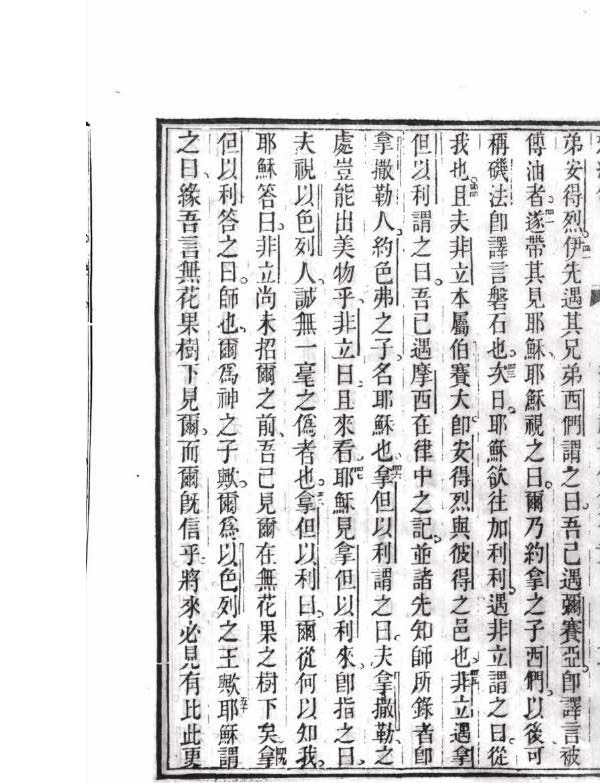 弟安得烈伊先遇其兄弟西們謂之曰吾已遇彌賽亞卽譯言被
傅油者遂帶其見耶穌耶穌視之曰爾乃約拿之子西們以後可
稱磯法卽譯言磐石也次日耶穌欲往加利利遇非立謂之曰從
我也且夫非立本屬伯賽大卽安得烈與彼得之邑也非立遇拿
但以利謂之曰吾已遇摩西在律中之記並諸先知師所錄者卽
拿撒勒人約色弗之子名耶穌也拿但以利謂之曰夫拿撒勒之
處豈能出美物乎非立曰且來看耶穌見拿但以利來卽指之曰
夫視以色列人誠無一毫之僞者也拿但以利曰爾從何以知我
耶穌答曰非立尚未招爾之前吾已見爾在無花果之樹下矣拿
但以利答之曰師也爾爲神之子歟爾爲以色列之王歟耶穌謂
之曰緣吾言無花果樹下見爾而爾旣信乎將來必見有比此更